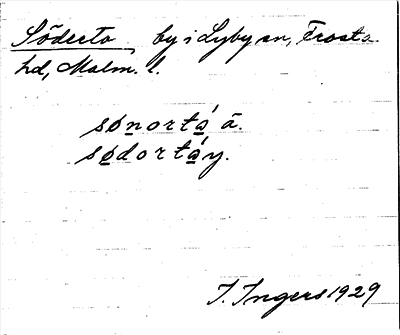 Söderto, by i Lyby sn, Frosta
hd, Malm. l.
sønortá ā.
sødortáy.
I. Ingers 1929